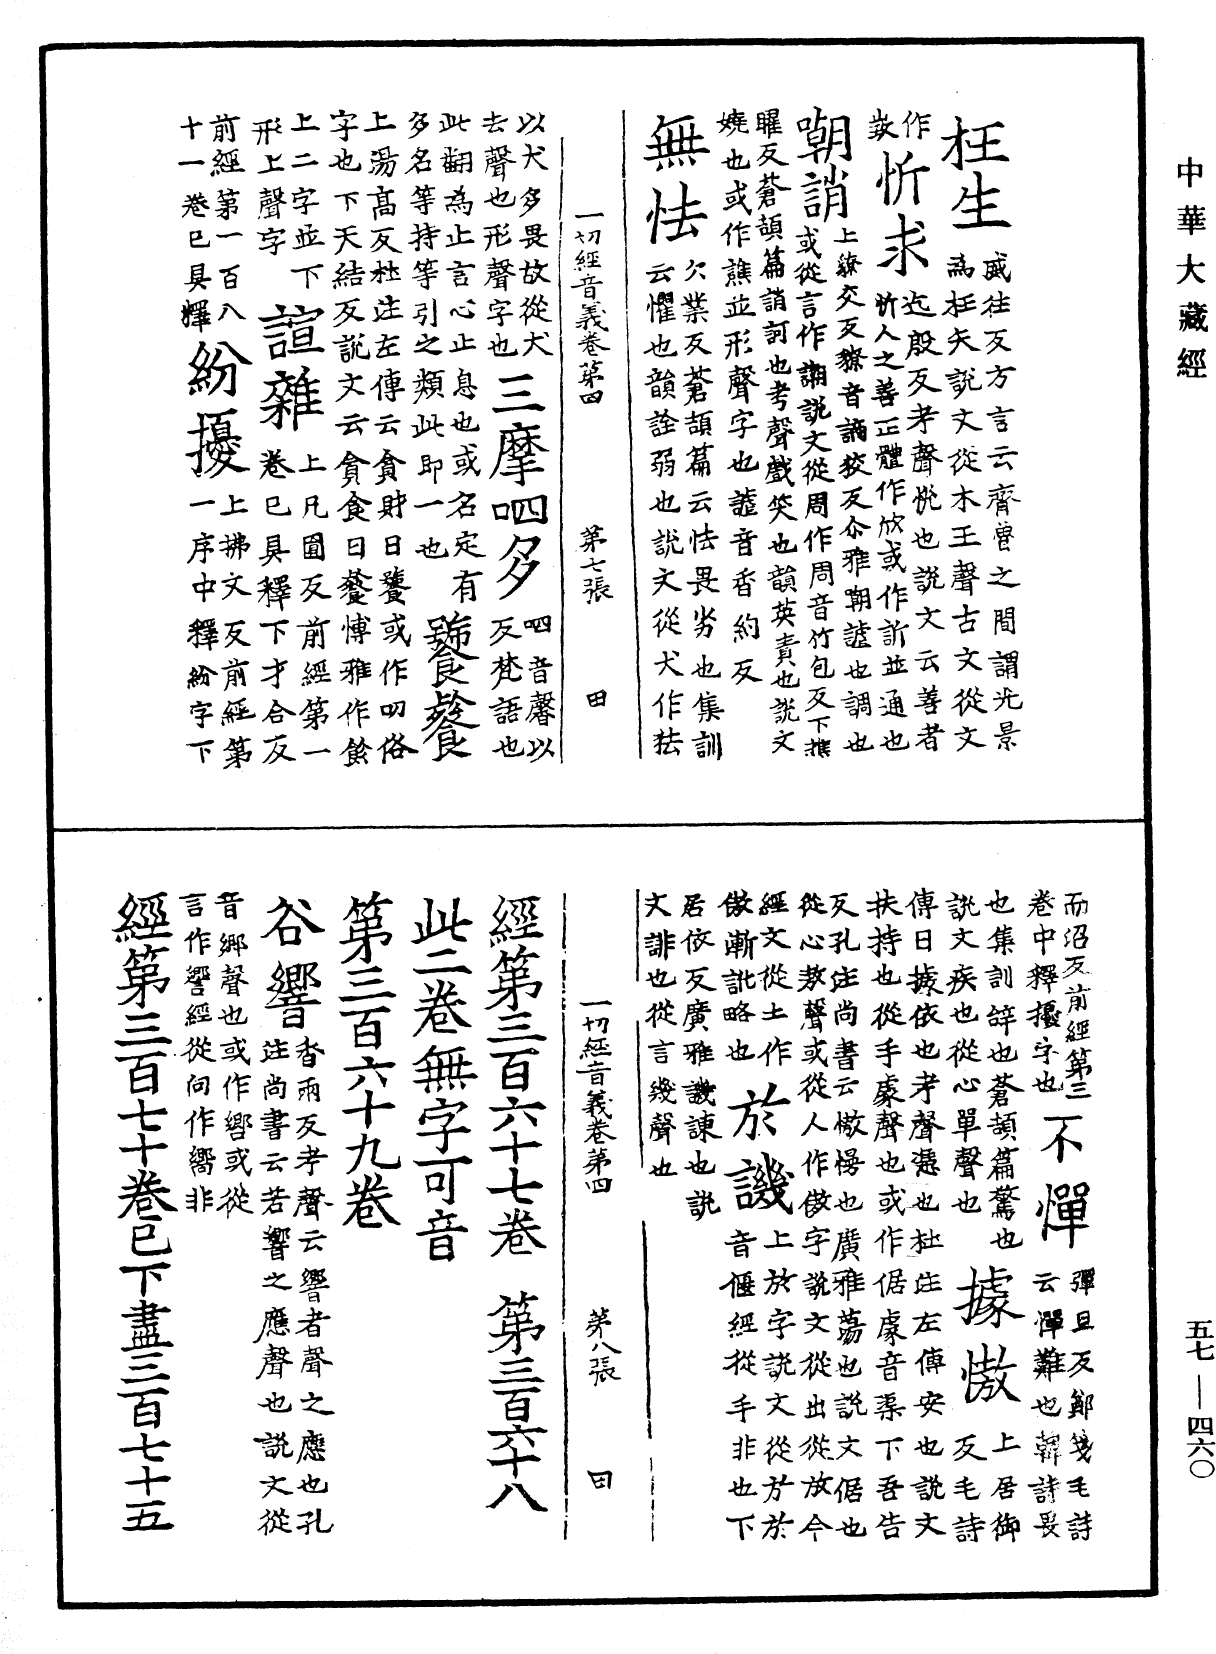 中華大藏經
枉生 威往反方言云齊曾之間謂光景
為枉矢說文從木王聲古文從文
作𢽟 忻求 迄殷反考聲悅也說文云善者
忻人之善正體作欣或作訢並通也
嘲誚 上𪏆交反𪏆音謫狡反尒雅嘲謔也調也
或從言作謿說文從周作啁音竹包反下樵
曜反蒼頡篇誚訶也考聲戲笑也韻英責也說文
嬈也或作譙並形聲字也謔音香約反
無怯 欠業反蒼頡篇云怯畏劣也集訓
云懼也韻詮弱也說文從犬作㹤
一切經音義卷第四 第七張 田
以犬多畏故從犬
去聲也形聲字也 三摩呬多 呬音馨以
反梵語也
此翻為止言心止息也或名定有
多名等持等引之類此即一也 饕餮
上湯高反杜注左傳云貪財曰饕或作叨俗
字也下天結反說文云貪食曰餮博雅作飻
上二字並下
形上聲字 諠雜 上凡圓反前經第一
卷已具釋下才合反
前經第一百八
十一卷已具釋 紛擾 上拂文反前經第
一序中釋紛字下
而沼反前經第三
卷中釋擾字也 不憚 彈旦反鄭箋毛詩
云憚難也韓詩畏
也集訓辭也蒼頡篇驚也
說文疾也從心單聲也 據慠 上居御
反毛詩
傳曰據依也考聲憑也杜注左傳安也說文
扶持也從手豦聲也或作倨豦音渠下吾告
反孔注尚書云慠慢也廣雅蕩也說文倨也
從心敖聲或從人作傲字說文從出從放今
經文從土作
傲漸訛略也 於譏 上於字說文從㫃於
音偃經從手非也下
居依反廣雅譏諫也說
文誹也從言幾聲也
一切經音義卷第四 第八張 田
經第三百六十七卷 第三百六十八
此二卷無字可音
第三百六十九卷
谷響 香兩反考聲云響者聲之應也孔
注尚書云若響之應聲也說文從
音鄉聲也或作響或從
言作響經從向作嚮非
經第三百七十卷已下盡三百七十五
五七—四六〇